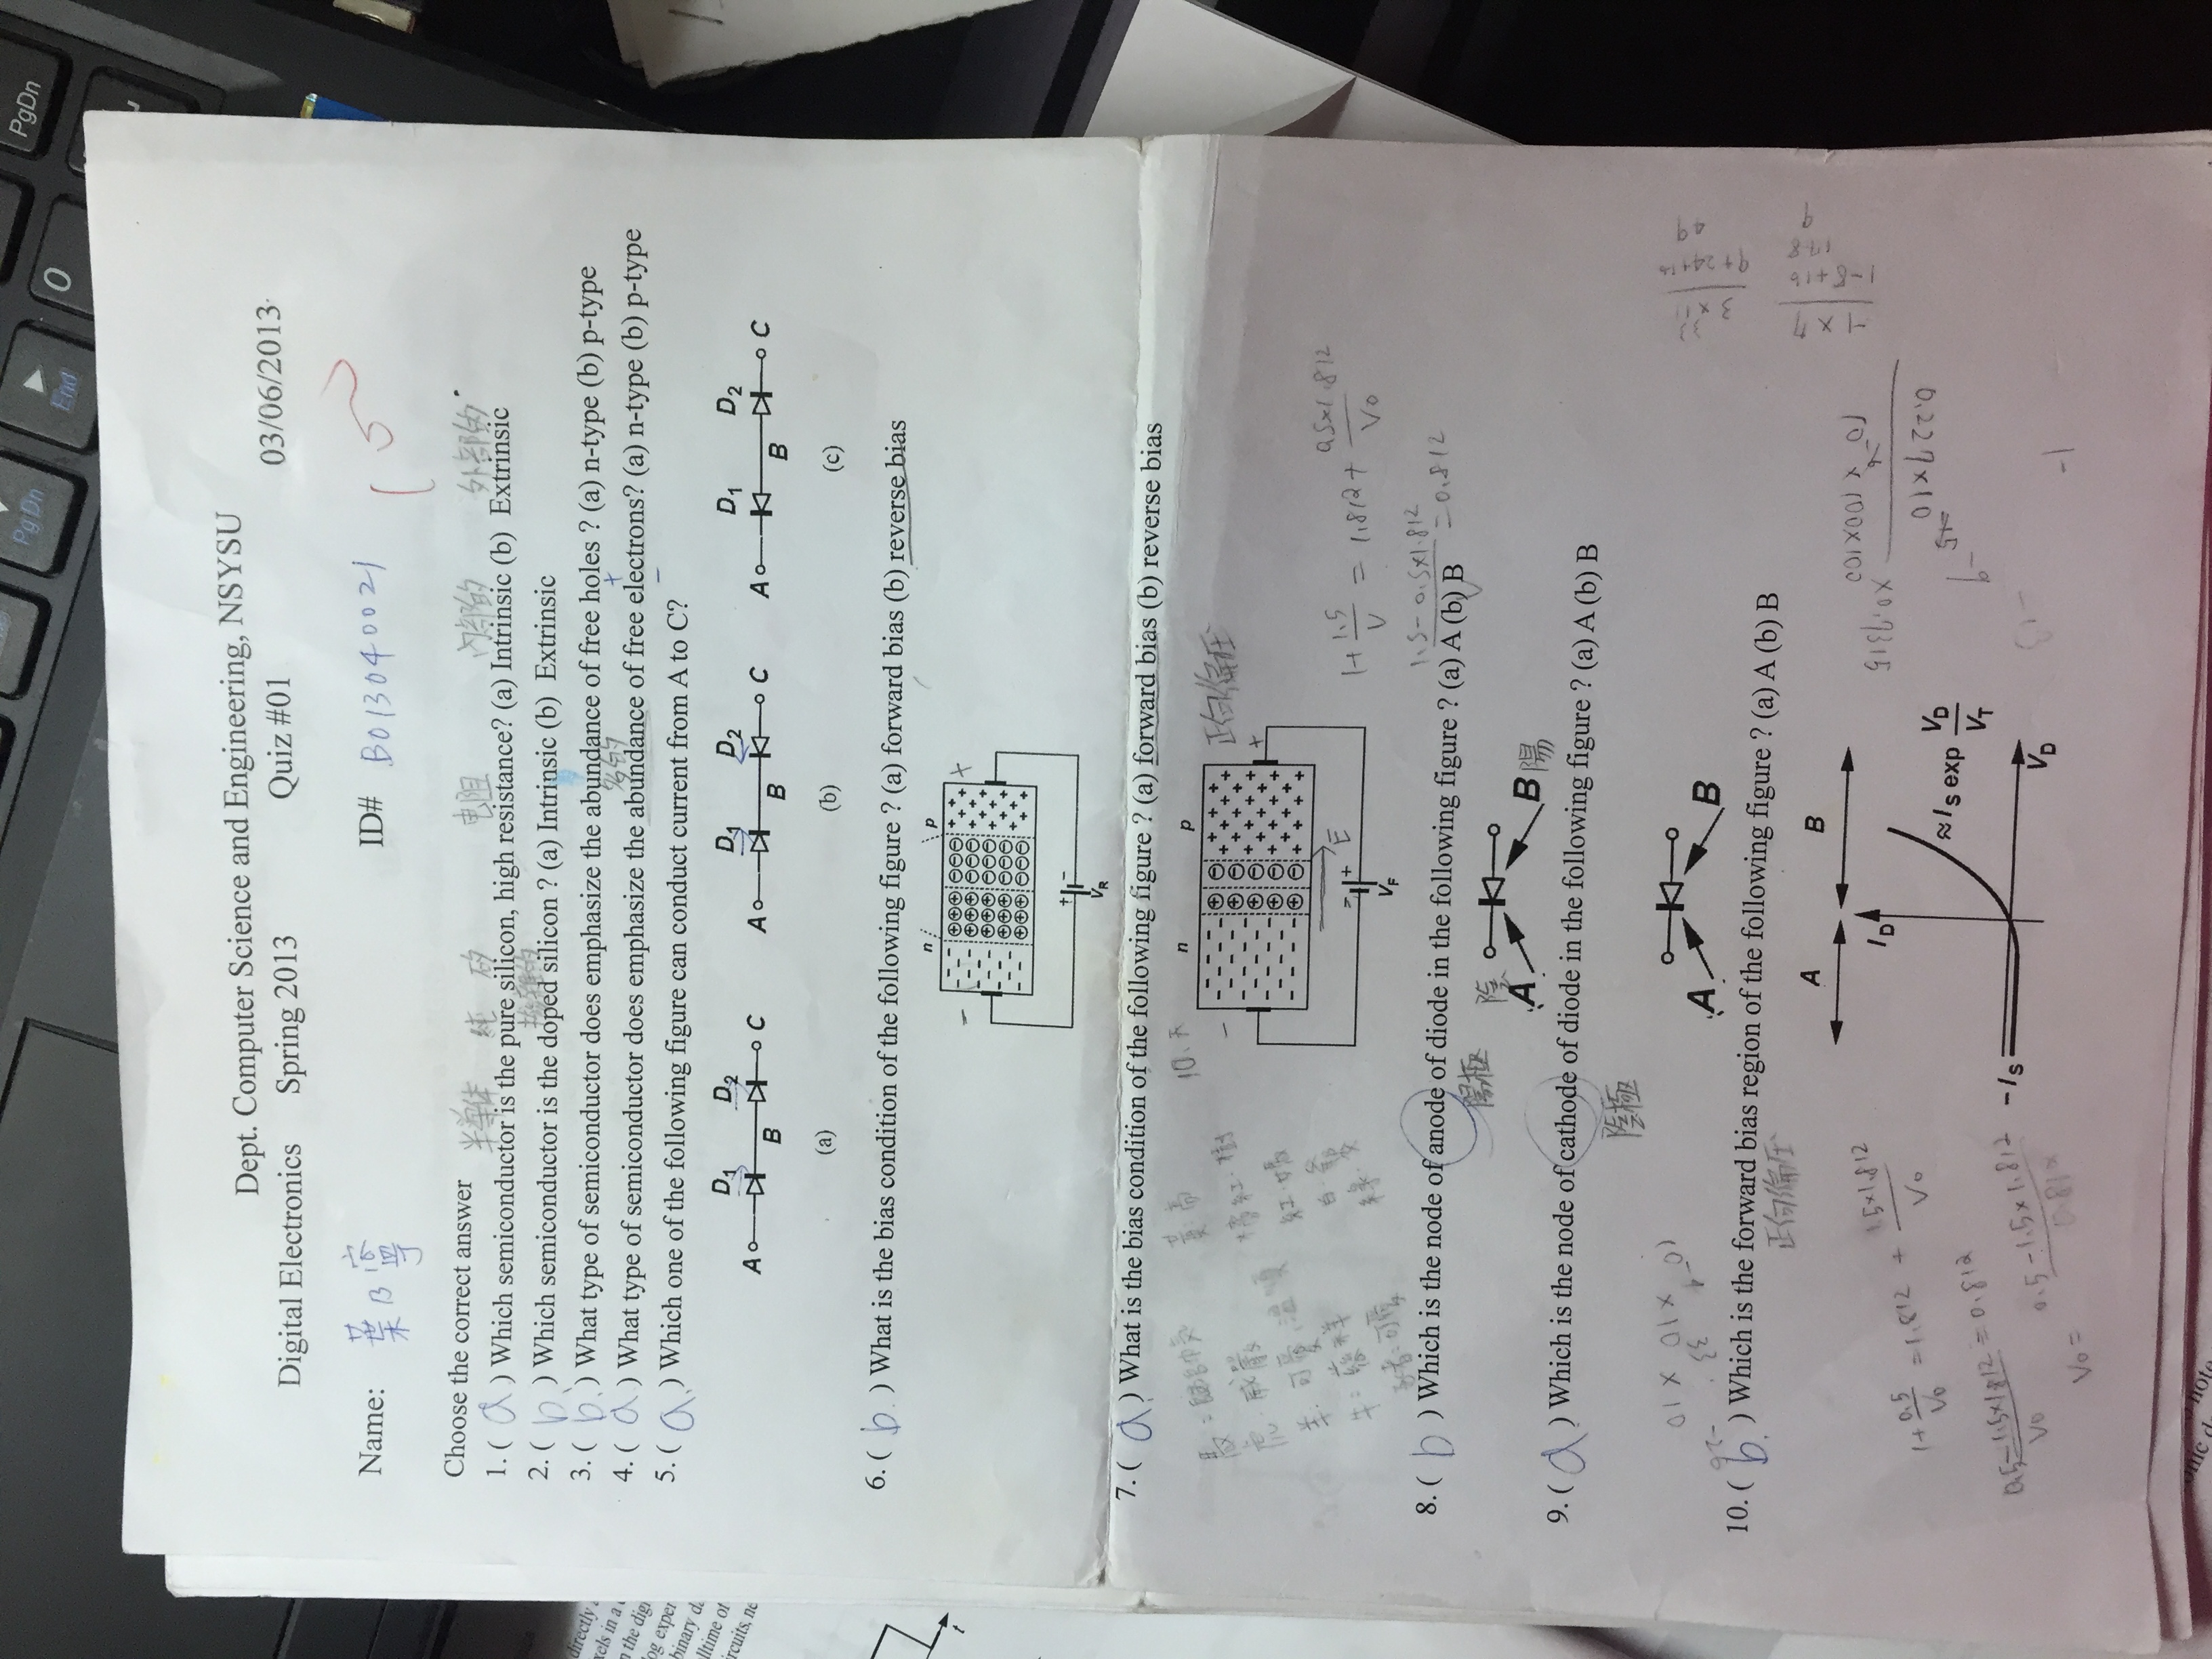 PgDn
PgDn
End
0
Dept. Computer Science and Engineering, NSYSU
Digital Electronics Spring 2013 Quiz #01 03/06/2013
Name: 葉乃寧 ID# B013040021
Choose the correct answer
半導体 純 矽 电阻 內部的 外部的
1. ( a ) Which semiconductor is the pure silicon, high resistance? (a) Intrinsic (b) Extrinsic
摻雜的
2. ( b ) Which semiconductor is the doped silicon ? (a) Intrinsic (b) Extrinsic
3. ( b. ) What type of semiconductor does emphasize the abundance of free holes ? (a) n-type (b) p-type
多的 +
4. ( a. ) What type of semiconductor does emphasize the abundance of free electrons? (a) n-type (b) p-type
−
5. ( a. ) Which one of the following figure can conduct current from A to C?
D1 D2 D1 D2 D1 D2
A B C A B C A B C
(a) (b) (c)
6. ( b. ) What is the bias condition of the following figure ? (a) forward bias (b) reverse bias
n p
− +
+ −
VR
7. ( a. ) What is the bias condition of the following figure ? (a) forward bias (b) reverse bias
n p
− 正向偏压
+
虎:威嚴
羊:可愛,溫順
E
− +
VF
1+ 1.5/V = 1.812+ 0.5x1.812/V0
1.5-0.5x1.812 = 0.812
8. ( b ) Which is the node of anode of diode in the following figure ? (a) A (b) B
陽極
陰 A B 陽
9. ( a. ) Which is the node of cathode of diode in the following figure ? (a) A (b) B
陰極
A B
10. ( b. ) Which is the forward bias region of the following figure ? (a) A (b) B
正向偏圧
A B
ID
≈IS exp VD/VT
−IS
VD
1+ 0.5/V0 = 1.812 + 1.5x1.812/V0
0.5-1.5x1.812/V0 = 0.812
V0 = 0.5-1.5x1.812/0.812